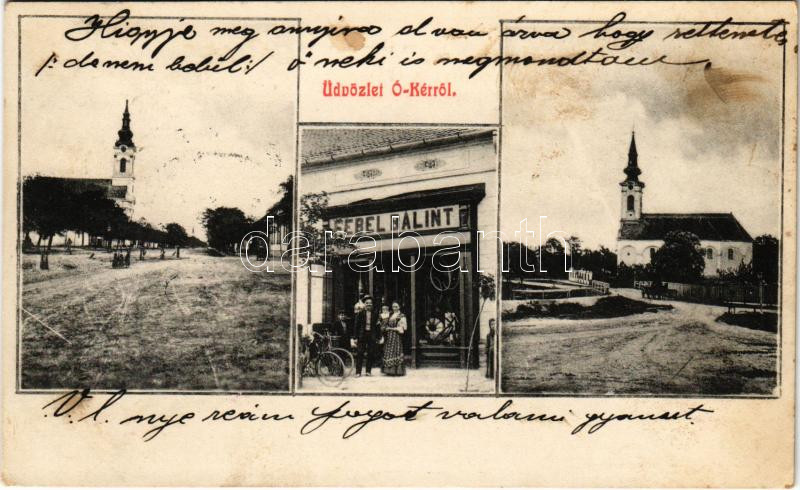 Higyje meg annyira el van árva hogy rettenetes
/: de nem babul :/ ő neki is megmondtam.
Üdvözlet Ó-Kérről.
GEBEL BÁLINT
darabanth.com
V. l. nye reám fogot valami gyanut.